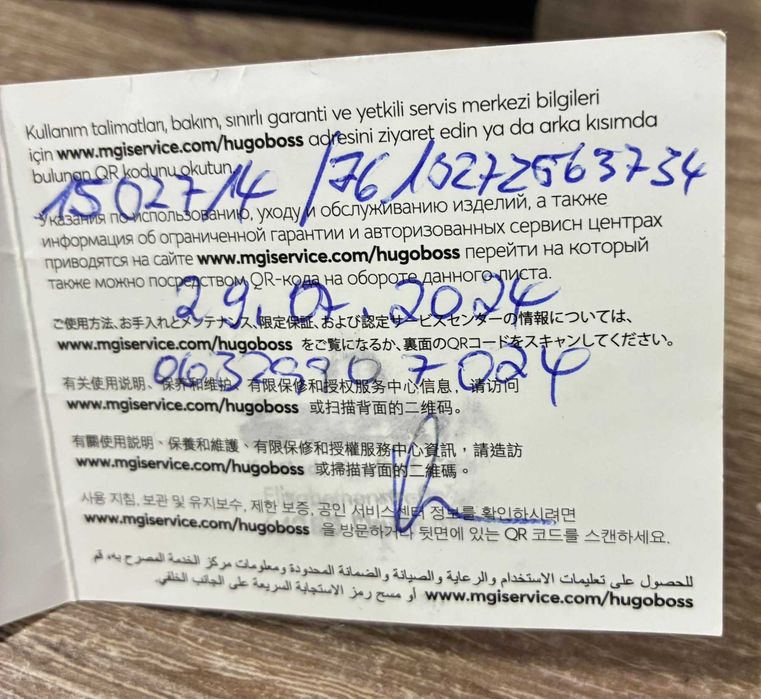 Kullanım talimatları, bakım, sınırlı garanti ve yetkili servis merkezi bilgileri
için www.mgiservice.com/hugoboss adresini ziyaret edin ya da arka kısımda
bulunan QR kodunu okutun.
1502714 /7613272563734
Указания по использованию, уходу и обслуживанию изделий, а также
информация об ограниченной гарантии и авторизованных сервисн центрах
приводятся на сайте www.mgiservice.com/hugoboss перейти на который
также можно посредством QR-кода на обороте данного листа.
29.07.2024
ご使用方法、お手入れとメンテナンス、限定保証、および認定サービスセンターの情報については、
www.mgiservice.com/hugoboss をご覧になるか、裏面のQRコードをスキャンしてください。
06329907024
有关使用说明、保养和维护、有限保修和授权服务中心信息，请访问
www.mgiservice.com/hugoboss 或扫描背面的二维码。
有關使用說明、保養和維護、有限保修和授權服務中心資訊，請造訪
www.mgiservice.com/hugoboss 或掃描背面的二維碼。
사용 지침, 보관 및 유지보수, 제한 보증, 공인 서비스센터 정보를 확인하시려면
www.mgiservice.com/hugoboss 을 방문하거나 뒷면에 있는 QR 코드를 스캔하세요.
للحصول على تعليمات الاستخدام والرعاية والصيانة والضمانة المحدودة ومعلومات مركز الخدمة المصرح به، قم
www.mgiservice.com/hugoboss أو مسح رمز الاستجابة السريعة على الجانب الخلفي.